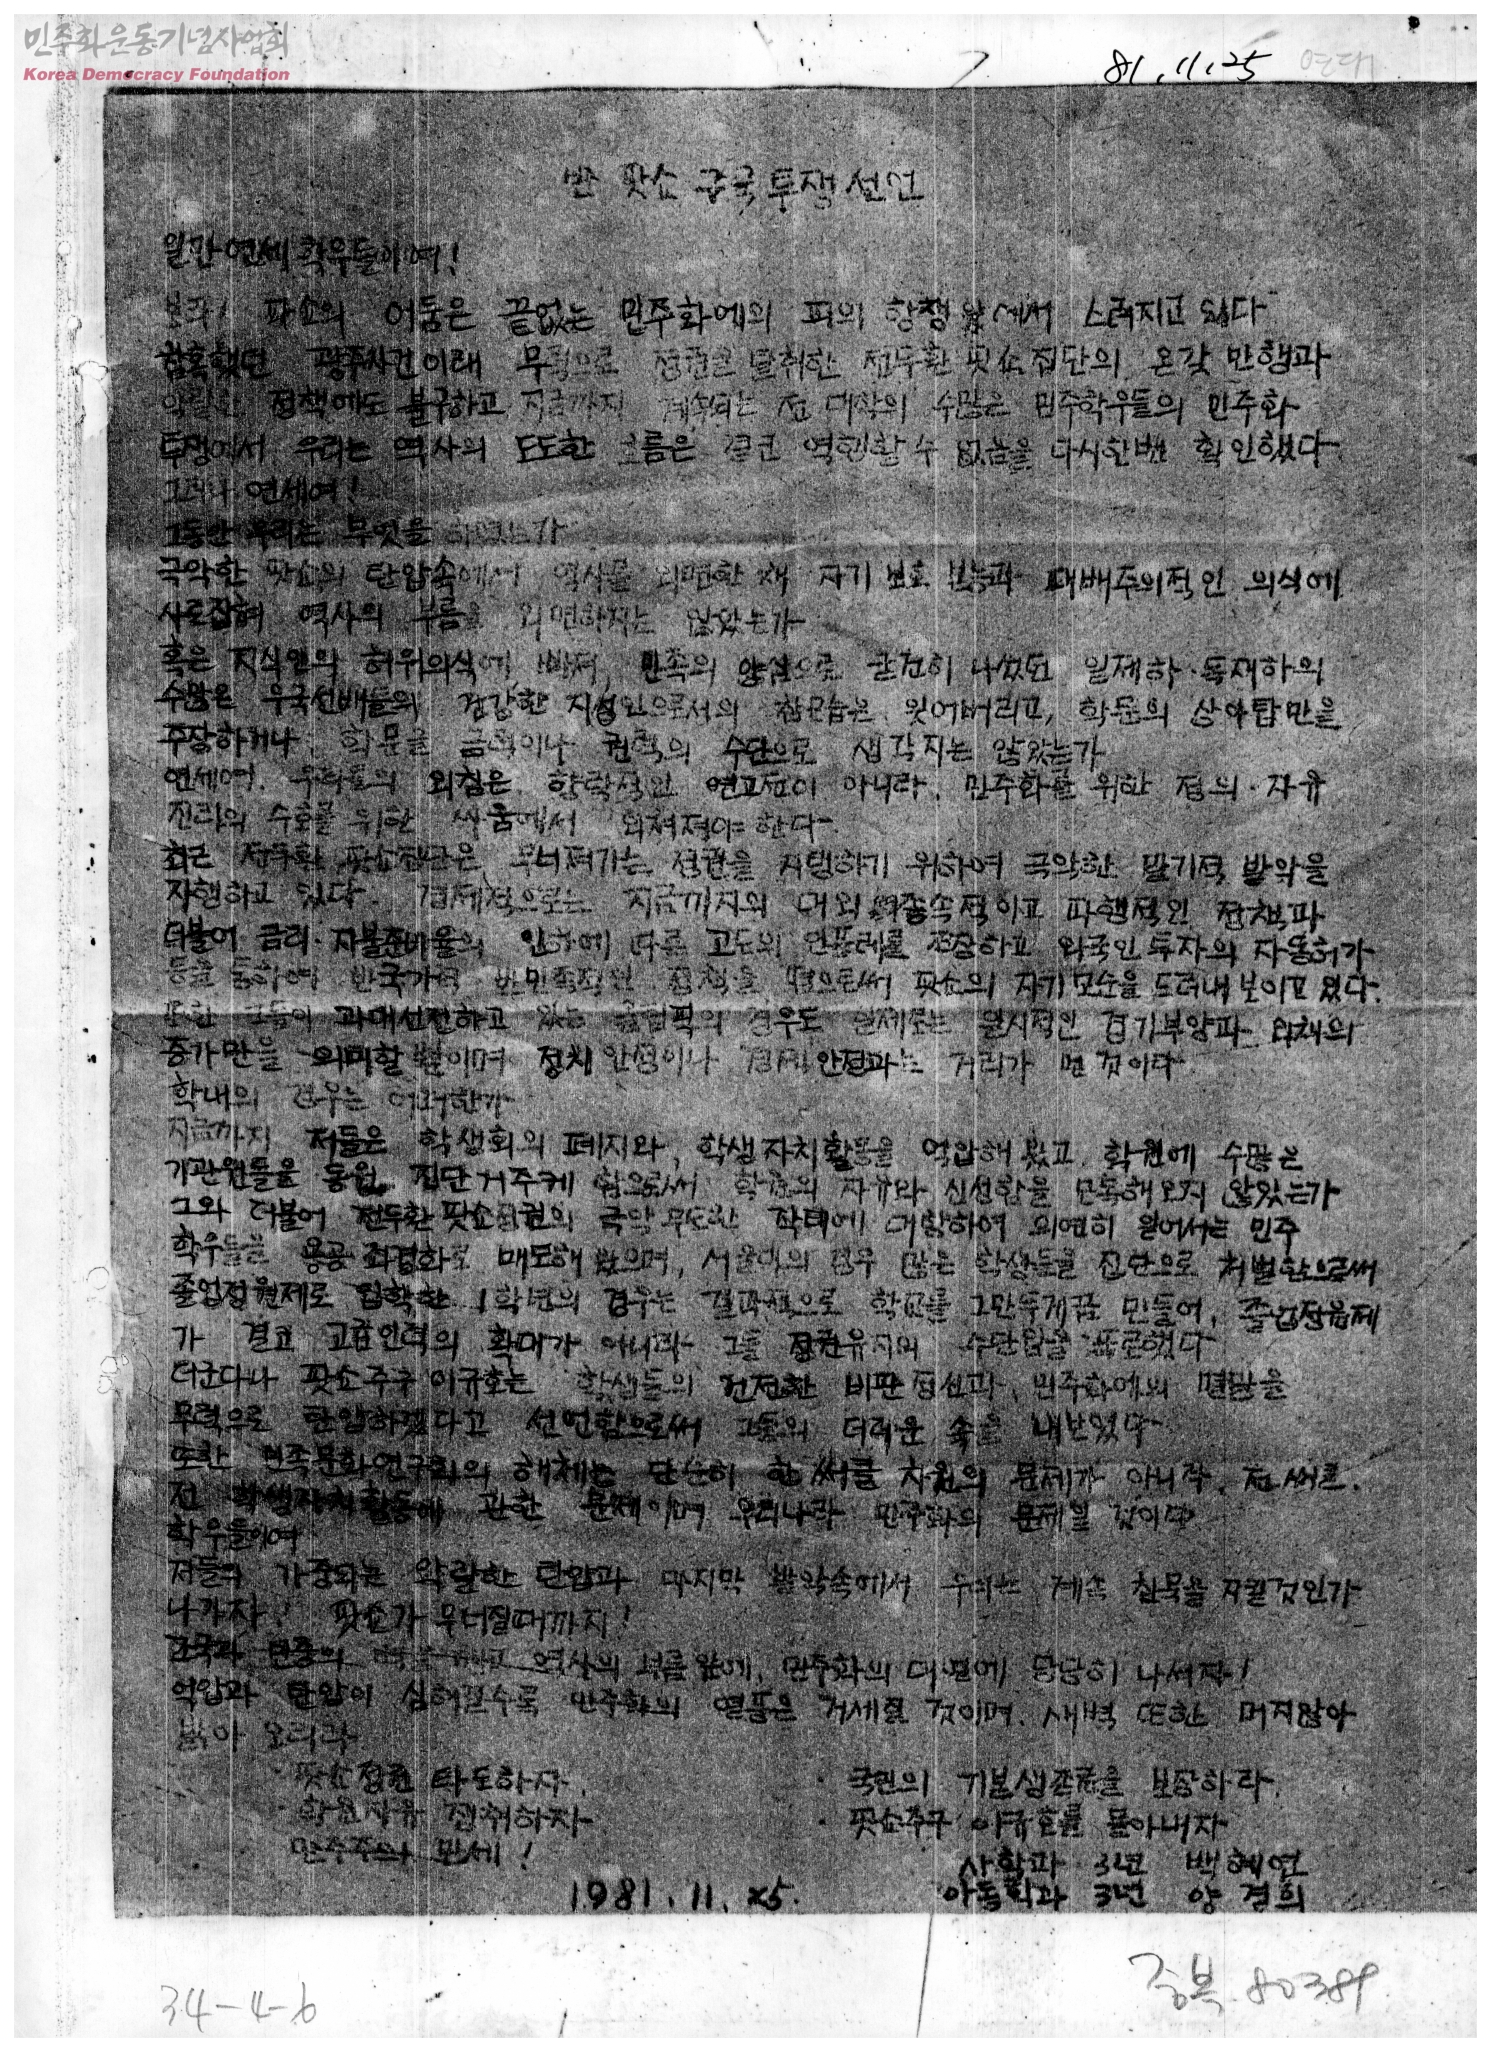 민주화운동기념사업회
Korea Democracy Foundation
81.11.25 연대
반 팟쇼 구국투쟁선언
일만 연세 학우들이여!
보라! 팟쇼의 어둠은 끝없는 민주화에의 피의 항쟁 앞에서 스러지고 있다
참혹했던 광주사건이래 무력으로 정권을 탈취한 전두환 팟쇼집단의 온갖 만행과
악랄한 정책에도 불구하고 지금까지 계속되는 전 대학의 수많은 민주학우들의 민주화
투쟁에서 우리는 역사의 도도한 흐름은 결코 역행할 수 없음을 다시한번 확인했다
그러나 연세여!
그동안 우리는 무엇을 하였는가
극악한 팟쇼의 탄압속에서 역사를 외면한 채 자기 보호 본능과 패배주의적인 의식에
사로잡혀 역사의 부름을 외면하지는 않았는가
혹은 지식인의 허위의식에 빠져, 민족의 양심으로 분연히 나섰던 일제하·독재하의
수많은 우국선배들의 건강한 지성인으로서의 참모습은 잊어버리고, 학문의 상아탑만을
주장하거나, 학문을 금력이나 권력의 수단으로 생각지는 않았는가
연세여. 우리들의 외침은 향락적인 연고전이 아니라, 민주화를 위한 정의·자유
진리의 수호를 위한 싸움에서 외쳐져야 한다
최근 전두환 팟쇼집단은 무너져가는 정권을 지탱하기 위하여 극악한 발기적 발악을
자행하고 있다. 경제적으로는 지금까지의 대외 종속적이고 파행적인 정책과
더불어 금리·지불준비율의 인하에 따른 고도의 인플레를 조장하고 외국인 투자의 자동허가
등을 통하여 반국가적 반민족적인 정책을 폄으로써 팟쇼의 자기모순을 드러내 보이고 있다.
또한 그들이 과대선전하고 있는 올림픽의 경우도 실제로는 일시적인 경기부양과 외채의
증가만을 의미할 뿐이며 정치 안정이나 경제 안정과는 거리가 먼 것이다
학내의 경우는 어떠한가
지금까지 저들은 학생회의 폐지와, 학생자치활동을 억압해 왔고 학원에 수많은
기관원들을 동원, 집단거주케 함으로써 학원의 자유와 신성함을 모독해오지 않았는가
그와 더불어 전두환 팟쇼정권의 극악무도한 작태에 대항하여 의연히 일어서는 민주
학우들을 용공 좌경화로 매도해 왔으며, 서울대의 경우 많은 학생들을 집단으로 처벌함으로써
졸업정원제로 입학한 1학년의 경우는 결과적으로 학교를 그만두게끔 만들어, 졸업정원제
가 결코 고급인력의 확대가 아니라 그들 정권유지의 수단임을 폭로했다
더군다나 팟쇼주구 이규호는 학생들의 건전한 비판정신과, 민주화에의 열망을
무력으로 탄압하겠다고 선언함으로써 그들의 더러운 속을 내보였다
또한 민족문화연구회의 해체는 단순히 한 써클 차원의 문제가 아니라, 전 써클,
전 학생자치활동에 관한 문제이며 우리나라 민주화의 문제일 것이다
학우들이여
저들의 가중되는 악랄한 탄압과 마지막 발악속에서 우리는 계속 침묵을 지킬것인가
나가자! 팟쇼가 무너질때까지!
조국과 민중의 역사의 부름 앞에, 민주화의 대열에 당당히 나서자!
억압과 탄압이 심해질수록 민주화의 열풍은 거세질 것이며, 새벽 또한 머지않아
밝아 오리라
· 팟쇼정권 타도하자.
· 국민의 기본생존권을 보장하라.
· 학원자유 쟁취하자
· 팟쇼주구 이규호를 몰아내자
· 민주주의 만세!
사학과 3년 백혜연
1981.11.25.
아동학과 3년 양경희
중복 80389
34-4-6